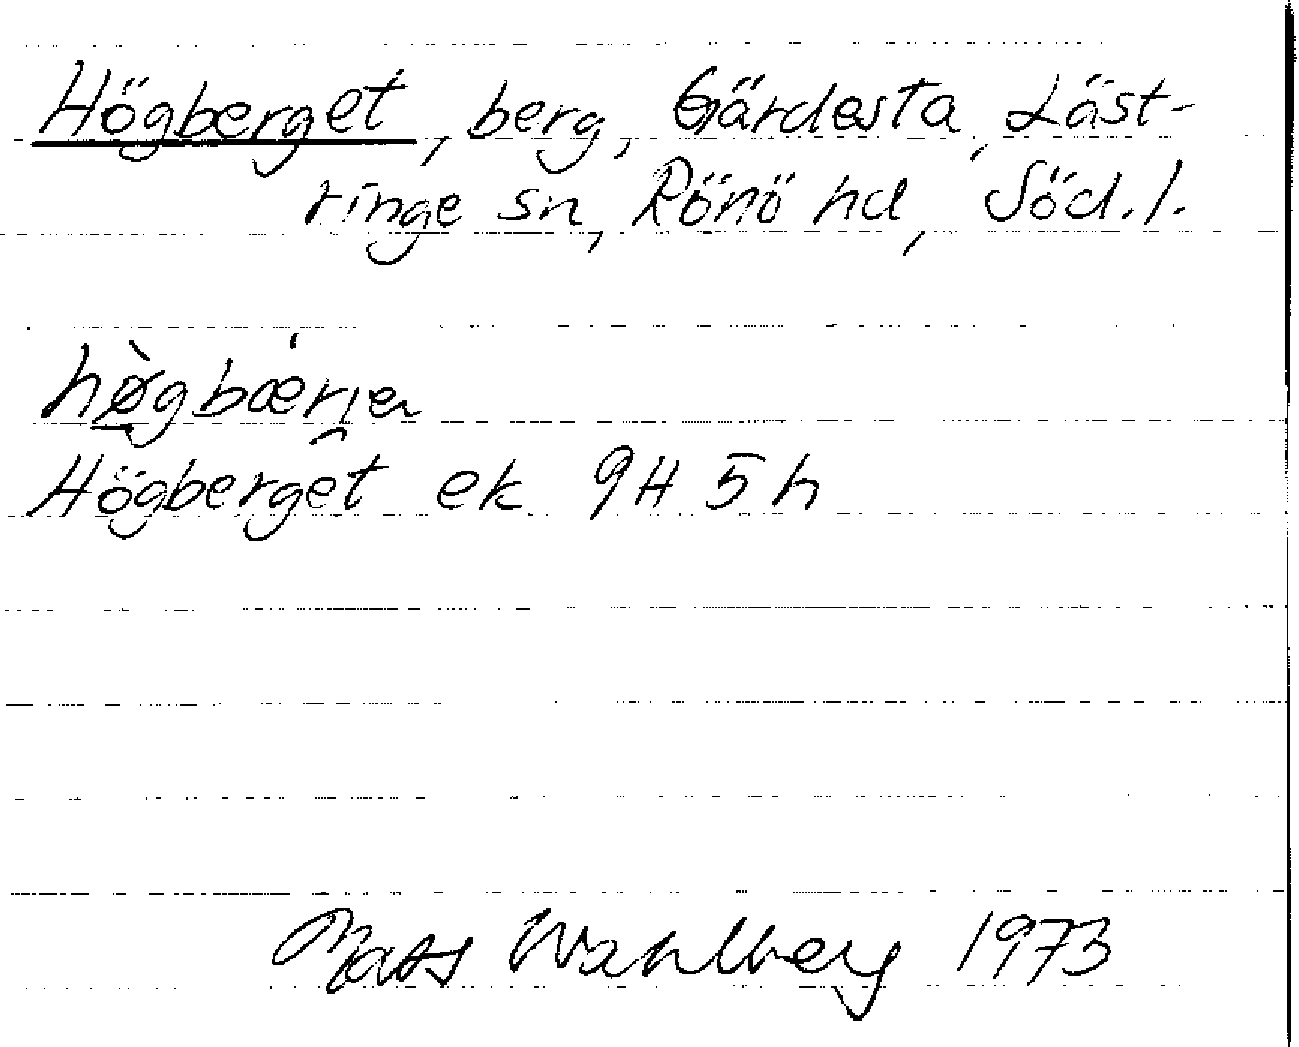 Högberget, berg, Gärdesta, Läst-
ringe sn, Rönö hd, Söd. l.
hø̀gbær̍jer
Högberget ek 9H 5h
Mats Wahlberg 1973